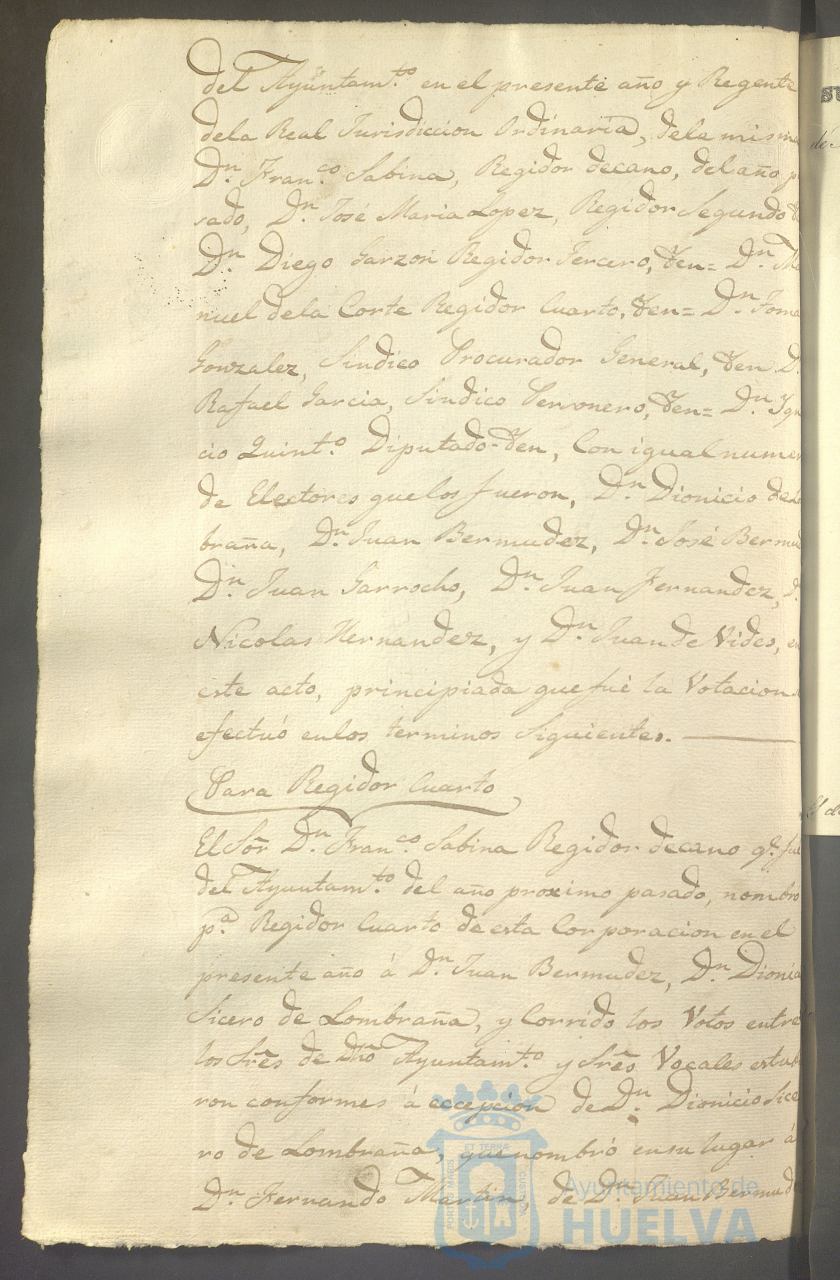 del Ayuntam.to en el presente año y Regente
dela Real Jurisdiccion Ordinaria, dela misma
Dn. Fran.co Sabina, Regidor decano, del año p
sado, Dn. José Maria Lopez, Regidor Segundo
Dn. Diego Garzon Regidor Tercero, Yden= Dn. Ma
nuel dela Corte Regidor Cuarto, Yden= Dn. Toma
Gonzalez, Sindico Procurador General, Yden D.
Rafael Garcia, Sindico Personero, Yden= Dn. Ygn
cio Quint.o Diputado Yden, Con igual numer
de Electores que los fueron, Dn. Dionicio de Lo
braña, Dn. Juan Bermudez, Dn. José Bermud
Dn. Juan Garrocho, Dn. Juan Fernandez, D.
Nicolas Hernandez, y Dn. Juan de Vides, en
este acto, principiada que fué la Votacion
efectuó en los terminos Siguientes.
Para Regidor Cuarto
El Sor. Dn. Fran.co Sabina Regidor decano q.e fue
del Ayuntam.to del año proximo pasado, nombro
p.a Regidor Cuarto de esta Corporacion en el
presente año á Dn. Juan Bermudez, Dn. Dionic
Sicero de Lombraña, y Corrido los Votos entre
los Sres. de Dho. Ayuntam.to y Sres. Vocales estuvie
ron conformes á eccepcion de Dn. Dionicio Sice
ro de Lombraña, que nombró en su lugar á
Dn. Fernando Martin, de Dn. Juan Bermud
Ayuntamiento de
HUELVA